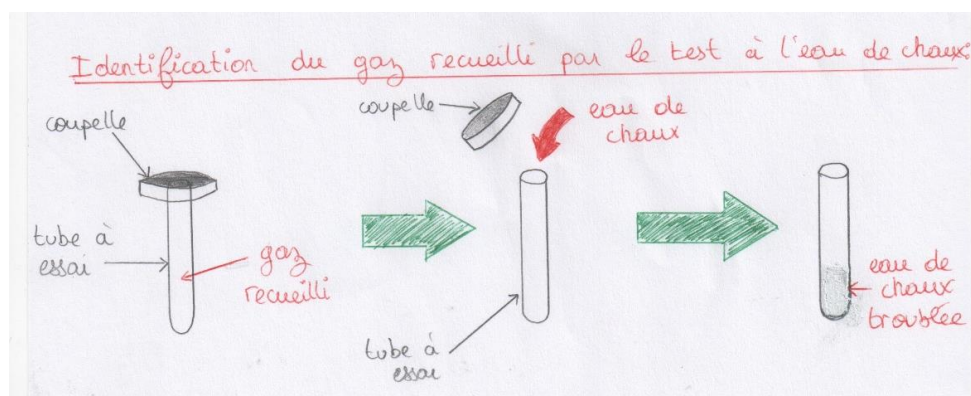 Identification du gaz recueilli par le test à l'eau de chaux:
coupelle
tube à
essai
gaz
recueilli
coupelle
eau de
chaux
tube à
essai
eau de
chaux
troublée